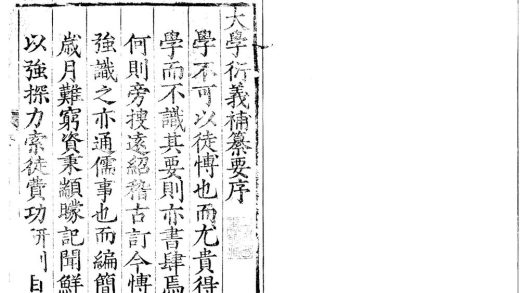 大學衍義補纂要序
學不可以徒博也而尤貴得
學而不識其要則亦書肆焉
何則旁搜遠紹稽古訂今博
強識之亦通儒事也而編簡
歲月難窮資秉顓朦記聞鮮
以強探力索徒費功研